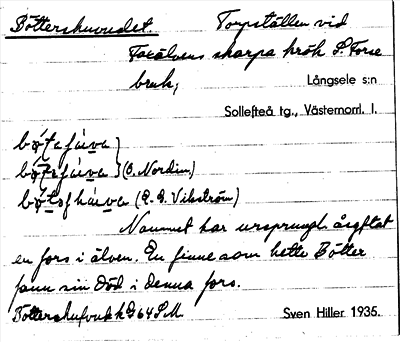 Böttershuvudet. Torpställen vid
Faxälvens skarpa krök S. Forse
bruk,
Långsele s:n
Sollefteå tg., Västernorrl. l.
(O. Nordin)
(E. O. Vikström)
Namnet har ursprungl. åsyftat
en fors i älven. En finne som hette Bötter
fann sin död i denna fors.
64 S.M.
Sven Hiller 1935.